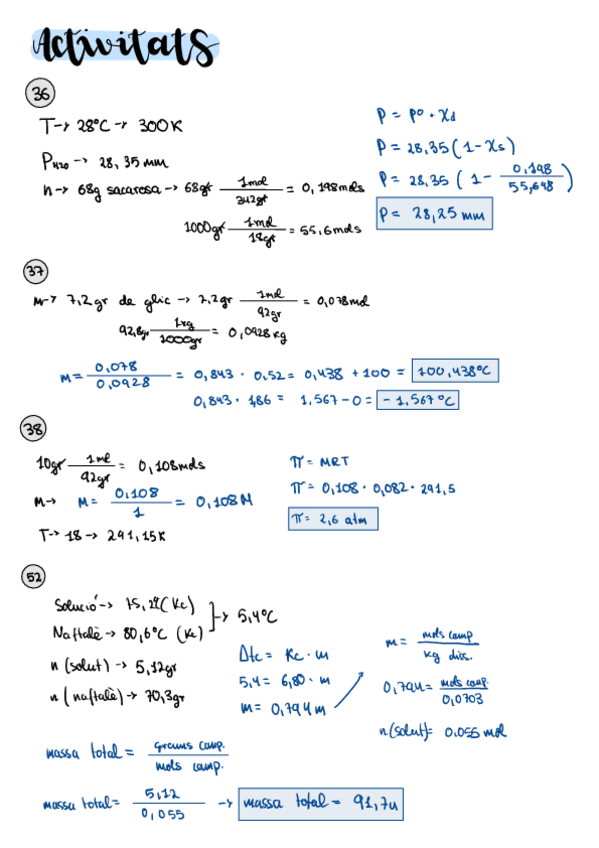 Activitats
36
T → 28ºC → 300K
P H2O → 28,35 mm
n → 68g sacarosa → 68gr 1mol/342gr = 0,198mols
1000gr 1mol/18gr = 55,6mols
P = Pº · Xd
P = 28,35 (1 - Xs)
P = 28,35 (1 - 0,198/55,698)
P = 28,25 mm
37
m → 7,2gr de glic → 7,2gr 1mol/92gr = 0,078mol
92,8gr 1kg/1000gr = 0,0928kg
m = 0,078/0,0928 = 0,843 · 0,52 = 0,438 + 100 = 100,438ºC
0,843 · 1,86 = 1,567 - 0 = - 1,567ºC
38
10gr 1ml/92gr = 0,108mols
M → M = 0,108/1 = 0,108M
T → 18 → 291,15K
π = MRT
π = 0,108 · 0,082 · 291,5
π = 2,6 atm
52
Solució → 75,2º (Kc)
Naftalè → 80,6ºC (Kc)
→ 5,4ºC
n (solut) → 5,12gr
n (naftalè) → 70,3gr
Δtc = Kc · m
5,4 = 6,80 · m
m = 0,794m
m = mols comp./kg diss.
0,794 = mols comp./0,0703
n(solut) = 0,055 mol
massa total = grams comp./mols comp.
massa total = 5,12/0,055 → massa total = 91,7u